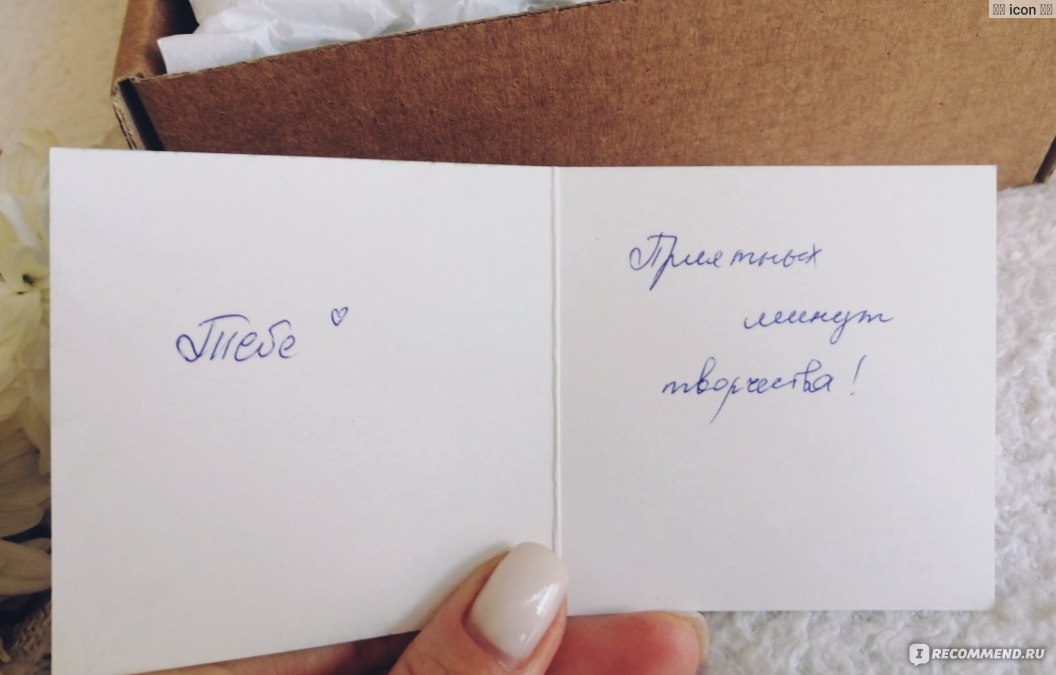 icon
Тебе ♡
Приятных
минут
творчества!
IRECOMMEND.RU